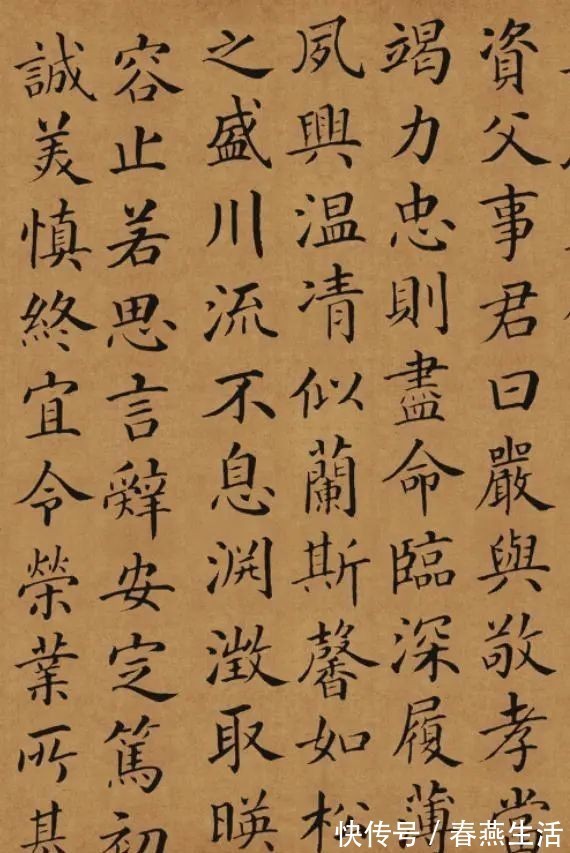 資父事君曰嚴與敬孝當
竭力忠則盡命臨深履薄
夙興温凊似蘭斯馨如松
之盛川流不息渊澂取暎
容止若思言辤安定篤初
誠美慎終宜令榮業所基
快传号 / 春燕生活